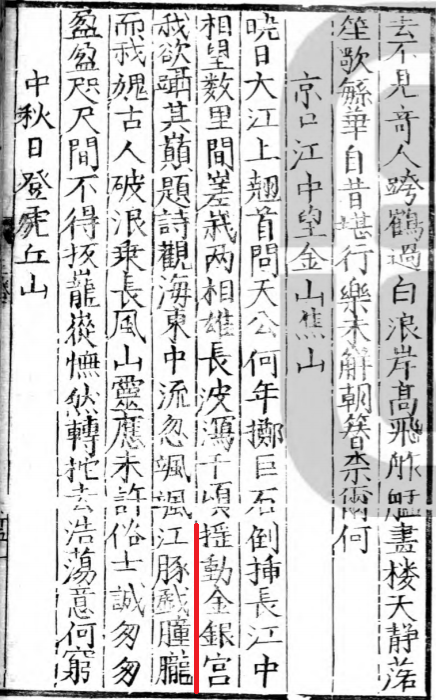 去不見奇人跨鶴過白浪岸高飛舴艋畫楼天静落
笙歌緐華自昔堪行樂未觧朝昬柰爾何
京口江中望金山焦山
曉日大江上翘首問天公何年擲巨石倒揷長江中
相望数里間嵳峩两相雄長波瀉千頃揺動金銀宫
我欲躡其巔題詩觀海東中流忽颯颯江豚戯朣朧
而我愧古人破浪乗長風山靈應未許俗士誠匆匆
盈盈咫尺間不得扳巃嵸憮然轉柁去浩蕩意何窮
中秋日登虎丘山